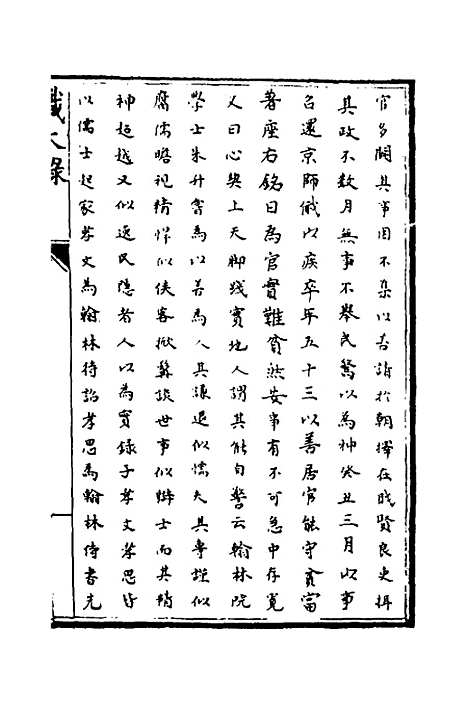 官多闕其事因不集以善諧於朝擇在職賢良史揖
其政不數月無事不舉民驚以為神癸丑三月以事
召還京師俄以疾卒年五十三以善居官能守貧富
著座右銘曰為官實難貧然安事有不可急中存寬
又曰心與上天脚踐實地人謂其能自警云翰林院
學士朱升嘗為以善為人其謙退似懦夫其專謹似
腐儒瞻視精悍似俠客掀髯談世事似辯士而其精
神超越又似逸民隱者人以為實錄子孝文孝思皆
以儒士起家孝文為翰林待詔孝思為翰林侍書先
獻文錄